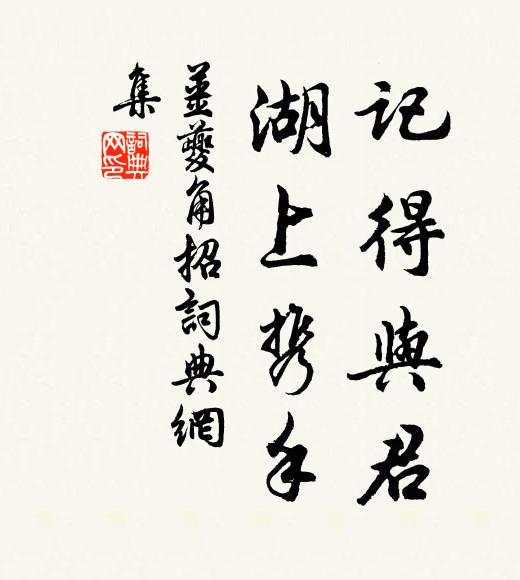 记得與君
湖上携手
姜夔角招詞典網
集
詞典
网印